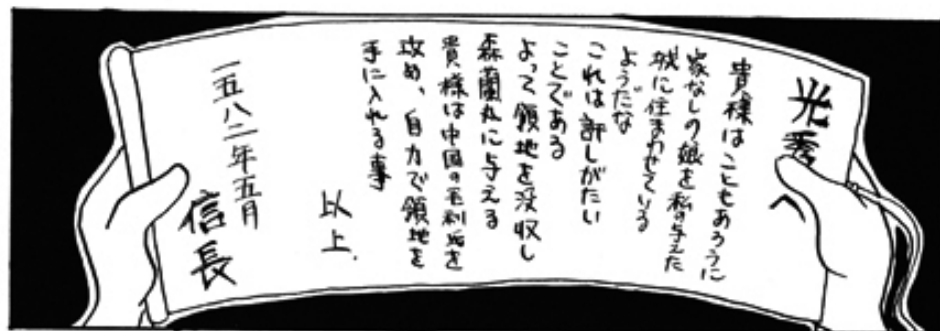 光秀へ
貴様はこともあろうに
家なしの娘を私の与えた
城に住まわせている
ようだな
これは許しがたい
ことである
よって領地を没収し
森蘭丸に与える
貴様は中国の毛利氏を
攻め、自力で領地を
手に入れる事
以上.
一五八二年五月
信長